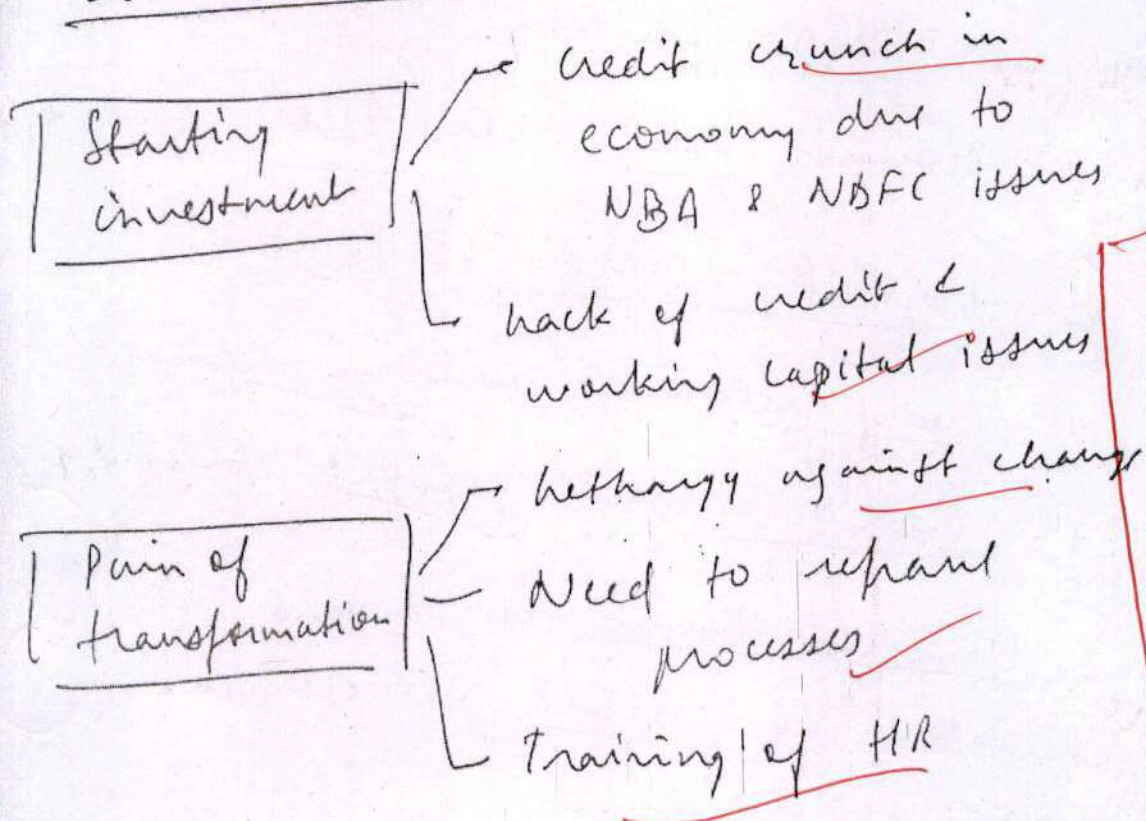 Starting
investment
credit crunch in
economy due to
NBA & NBFC issues
Lack of credit &
working capital issues
Pain of
transformation
Lethargy against change
Need to
processes
Training of HR